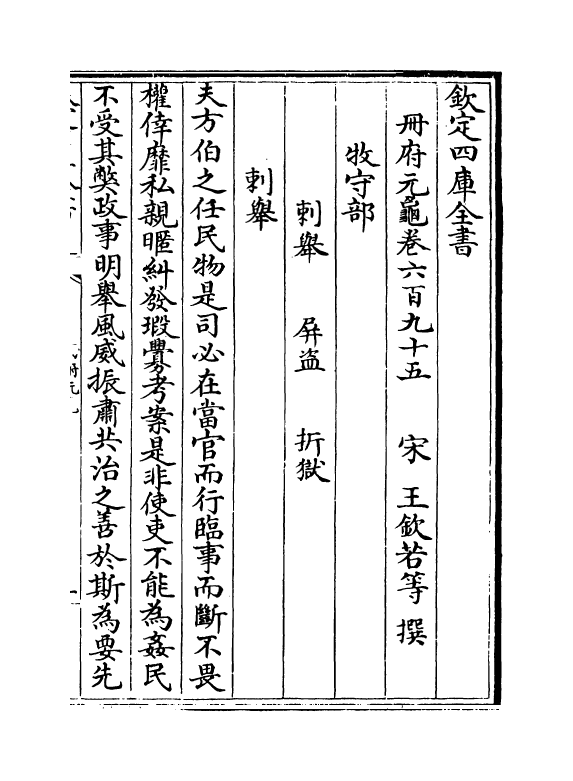 欽定四庫全書
冊府元龜卷六百九十五　宋　王欽若等　撰
牧守部
刺舉　屏盗　折獄
刺舉
夫方伯之任民物是司必在當官而行臨事而斷不畏
權倖靡私親暱糾發瑕釁考案是非使吏不能為姦民
不受其弊政事明舉風威振肅共治之善於斯為要先